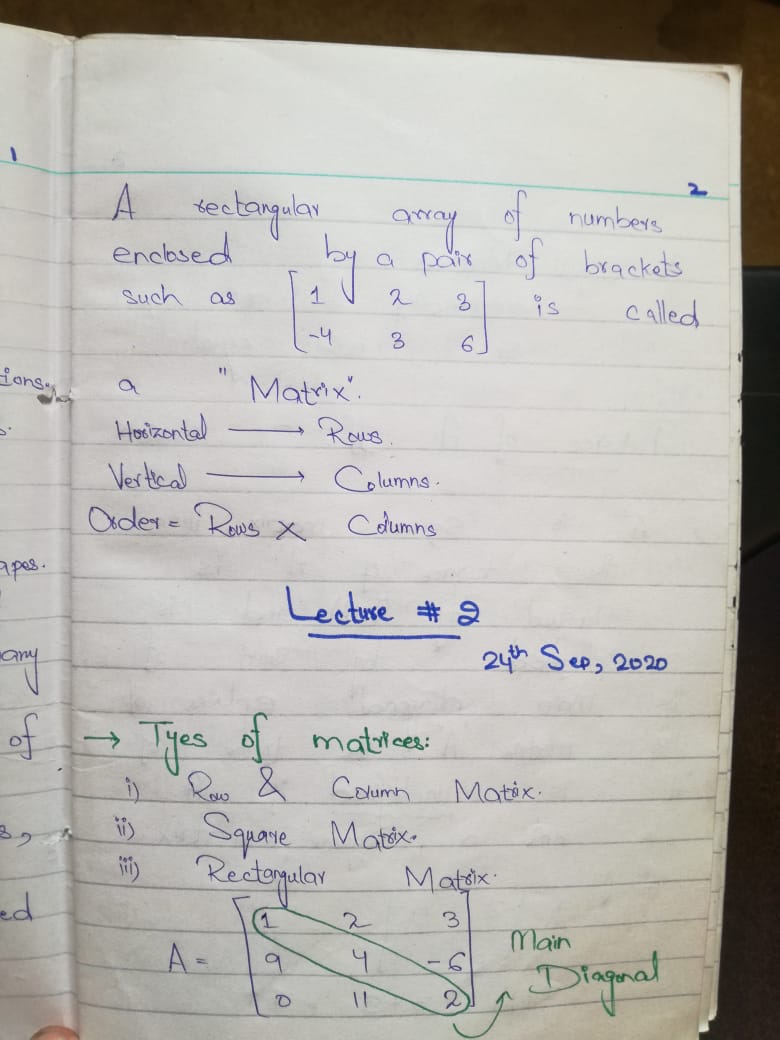 1
2
A rectangular array of numbers
enclosed by a pair of brackets
such as [1 2 3 is called
-4 3 6]
a "Matrix".
Horizontal → Rows.
Vertical → Columns.
Order = Rows × Columns
Lecture # 2
24th Sep, 2020
→ Tyes of matrices:
i) Row & Column Matrix.
ii) Square Matrix.
iii) Rectangular Matrix.
A = [1 2 3
9 4 -6
0 11 2]
Main
Diagonal
tions.
apes.
any
of
ed